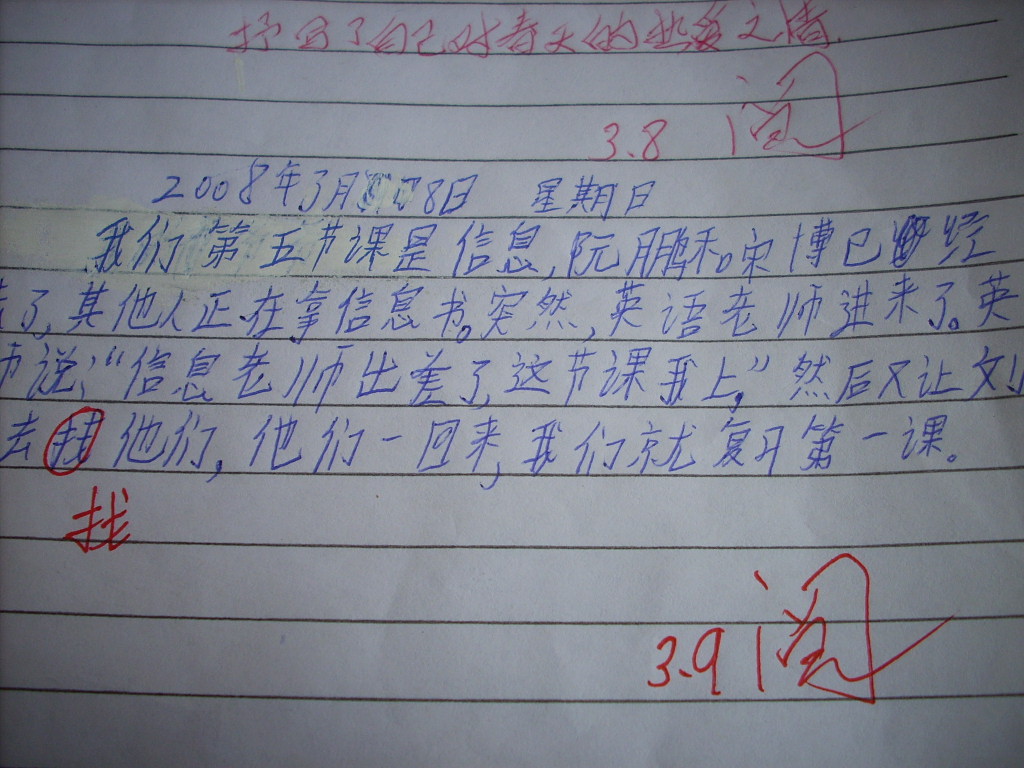 抒写了自己对春天的热爱之情.
3.8 阅
2008年3月8日 星期日
我们第五节课是信息,阮鹏和宋博已经
了,其他人正在拿信息书。突然,英语老师进来了。英
师说:“信息老师出差了,这节课我上。”然后又让文
去 他们,他们一回来,我们就复习第一课。
找
3.9 阅